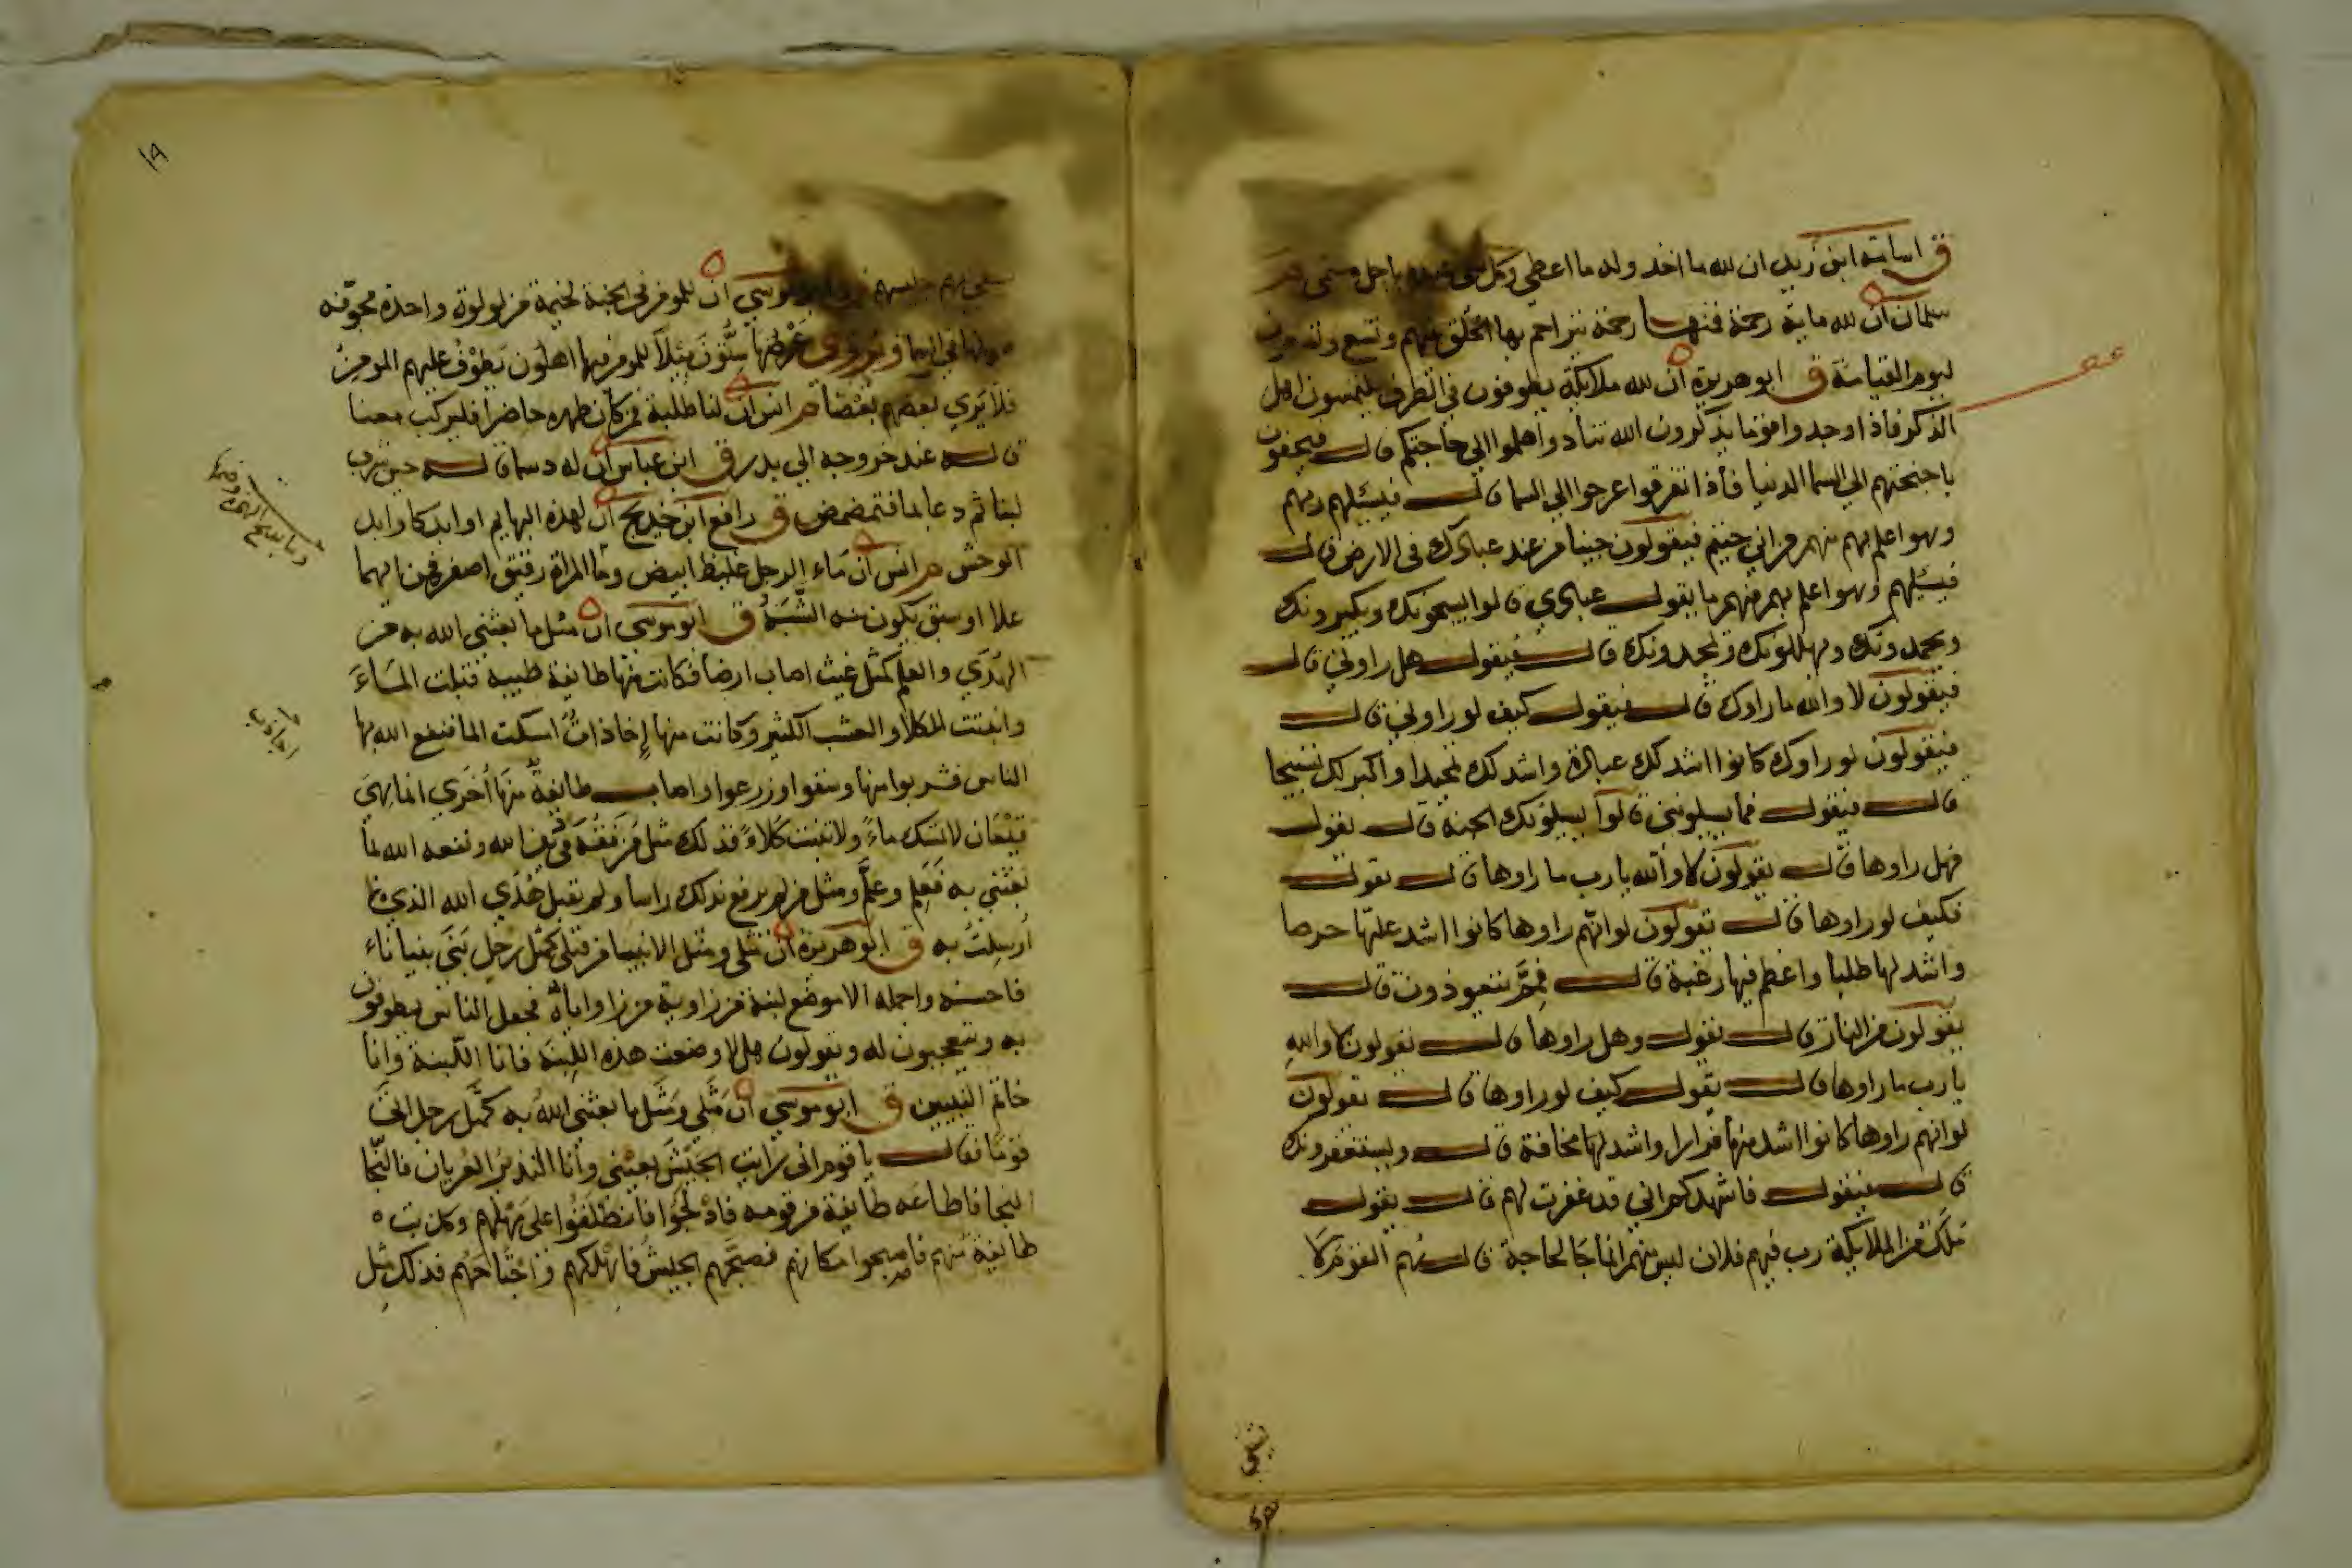 ق اسامة ابن زيد ان لله ما اخذ وله ما اعطي وكل شي عنده باجل مسمى م
سلمان ان لله ماية رحمة فمنها رحمة يتراحم بها الخلق بينهم وتسع وتسعون
ليوم القيامة ق ابو هريرة ان لله ملايكة يطوفون في الطرق يلتمسون اهل
الذكر فاذا وجدوا قوما يذكرون الله تنادوا هلموا الي حاجتكم قال فيحفون
باجنحتهم الي السما الدنيا فاذا تفرقوا عرجوا الي السما قال فيسئلهم ربهم
وهو اعلم بهم منهم من اين جيتم فيقولون جينا من عند عبادك في الارض قال
فيسئلهم وهو اعلم بهم منهم ما يقول عبادي قالوا يسبحونك ويكبرونك
ويحمدونك ويهللونك ويمجدونك قال فيقول هل راوني قال
فيقولون لا والله ما راوك قال فيقول كيف لو راوني قال
فيقولون لو راوك كانوا اشد لك عبادة واشد لك تمجيدا واكثر لك تسبيحا
قال فيقول فما يسيلونني قالوا يسيلونك الجنة قال يقول
فهل راوها قال يقولون لا والله يا رب ما راوها قال يقول
فكيف لو راوها قال يقولون لو انهم راوها كانوا اشد عليها حرصا
واشد لها طلبا واعظم فيها رغبة قال فمم يتعوذون قال
يقولون من النار قال يقول وهل راوها قال يقولون لا والله
يا رب ما راوها قال يقول كيف لو راوها قال يقولون
لو انهم راوها كانوا اشد منها فرارا واشد لها مخافة قال ويستغفرونك
قال فيقول فاشهدكم اني قد غفرت لهم قال يقول
ملك من الملايكة رب فيهم فلان ليس منهم انما جا لحاجة قال هم القوم لا
١٩
يشقي بهم جليسهم ق ابو موسي ان للمومن في الجنة لخيمة من لولوة واحدة مجوفة
طولها في السما ويروي عرضها ستون ميلا للمومن فيها اهلون يطوف عليهم المومن
فلا يري بعضهم بعضا م انس ان لنا طلبة فمن كان ظهره حاضرا فليركب معنا
قاله عند خروجه الي بدر ق ابن عباس ان له دسما قاله حين شرب
لبنا ثم دعا بما فتمضمض ق رافع ابن خديج ان لهذه البهايم اوابد كاوابد
الوحش م انس ان ماء الرجل غليظ ابيض وما المراة رقيق اصفر فمن ايهما
علا او سبق يكون منه الشبه ق ابو موسي ان مثل ما بعثني الله به من
الهدي والعلم كمثل غيث اصاب ارضا فكانت منها طايفة طيبة قبلت الماء
وانبتت الكلا والعشب الكثير وكانت منها إخاذات امسكت الما فنفع الله بها
الناس فشربوا منها وسقوا وزرعوا واصاب طايفة منها أخري انما هي
قيعان لا تمسك ماء ولا تنبت كلاء فذلك مثل من فقه في دين الله ونفعه الله بما
بعثني به فعلم وعلم ومثل من لم يرفع بذلك راسا ولم يقبل هدي الله الذي
أرسلت به ق ابو هريرة ان مثلي ومثل الانبيا من قبلي كمثل رجل بني بنياناء
فاحسنه واجمله الا موضع لبنة من زاوية من زواياه فجعل الناس يطوفون
به ويتعجبون له ويقولون هلا وضعت هذه اللبنة فانا اللبنة وانا
خاتم النبيين ق ابو موسي ان مثلي ومثل ما بعثني الله به كمثل رجل اتي
قوما فقال يا قوم اني رايت الجيش بعيني وأنا النذير العريان فالنجا
النجا فاطاعه طايفة من قومه فادلجوا فانطلقوا علي مهلهم وكذبت
طايفة منهم فاصبحوا مكانهم فصبحهم الجيش فاهلكهم واجتاحهم فذلك مثل